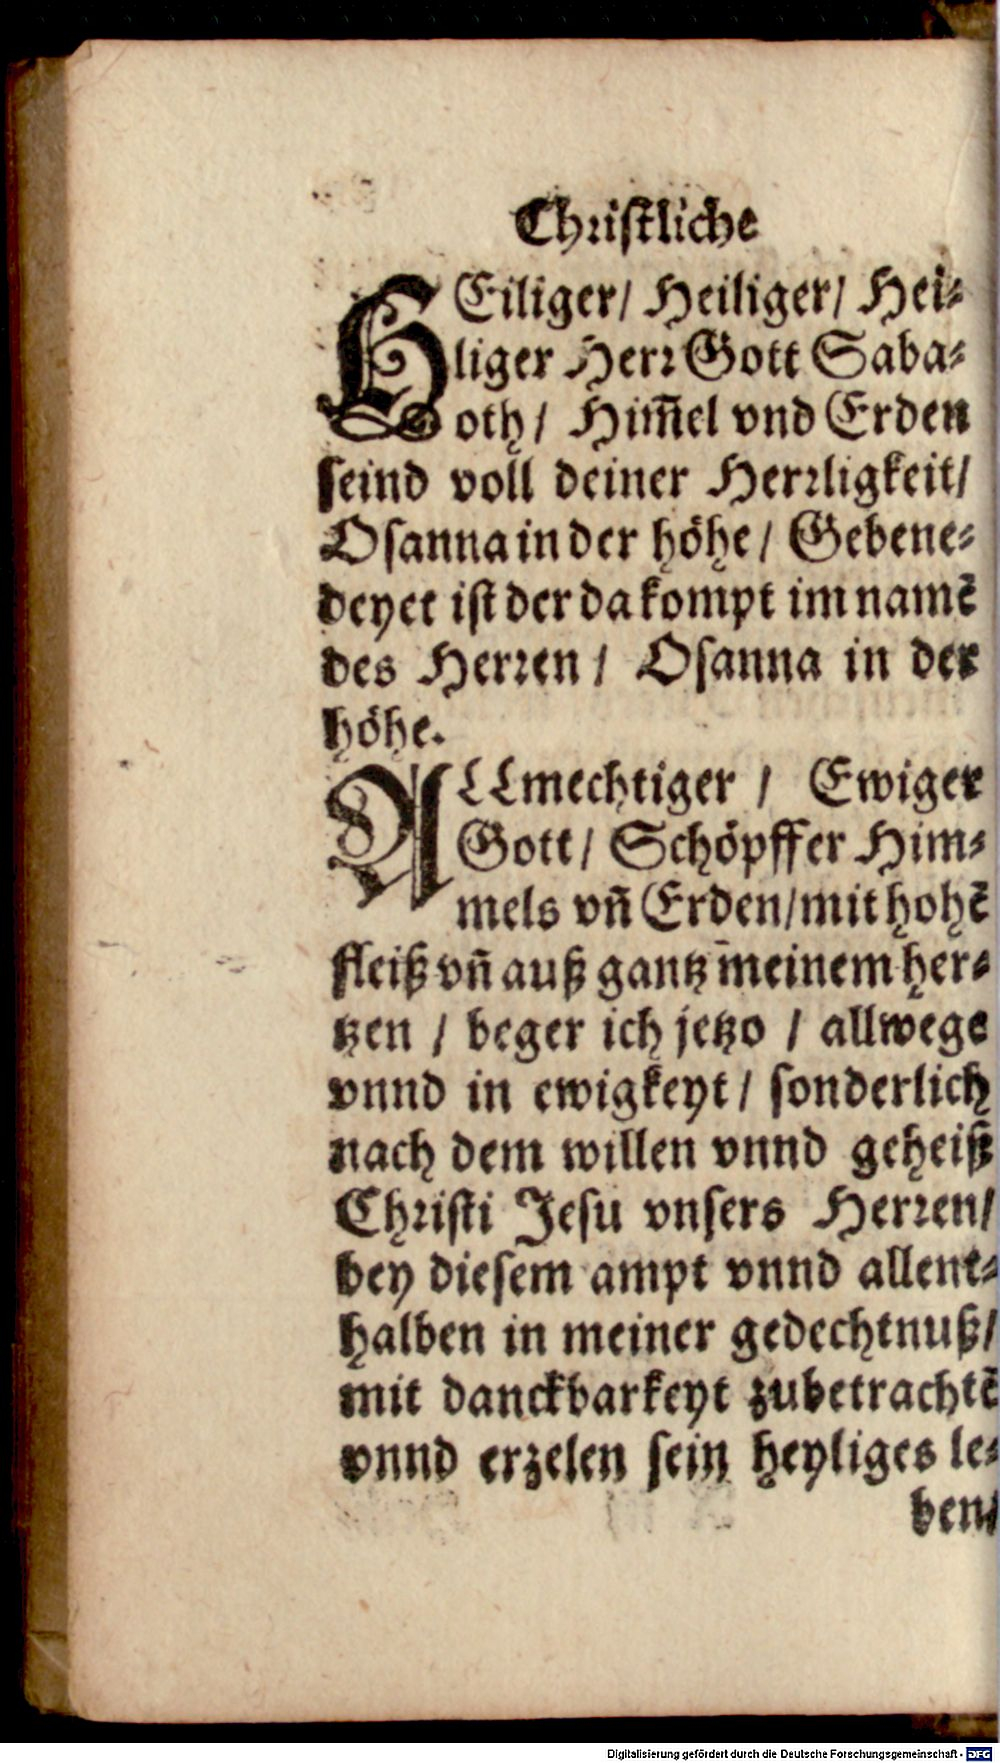 Christliche
HEiliger/ Heiliger/ Hei⸗
liger Herr Gott Saba⸗
oth/ Him̃el vnd Erden
seind voll deiner Herrligkeit/
Osanna in der höhe/ Gebene⸗
deyet ist der da kompt im namẽ
des Herren/ Osanna in der
höhe.
ALLmechtiger/ Ewiger
Gott/ Schöpffer Him⸗
mels vñ Erden/ mit hohẽ
fleiß vñ auß gantz̄ meinem her⸗
tzen/ beger ich jetzo/ allwege
vnnd in ewigkeyt/ sonderlich
nach dem willen vnnd geheiß
Christi Jesu vnsers Herren/
bey diesem ampt vnnd allent⸗
halben in meiner gedechtnuß/
mit danckbarkeyt zubetrachtẽ
vnnd erzelen sein heyliges le⸗
ben/
Digitalisierung gefördert durch die Deutsche Forschungsgemeinschaft - DFG